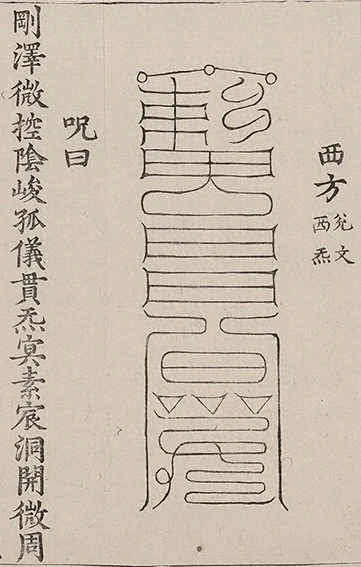 西方兌文西炁
呪曰
剛澤微控陰峻孤儀貫炁冥素宸洞開微周